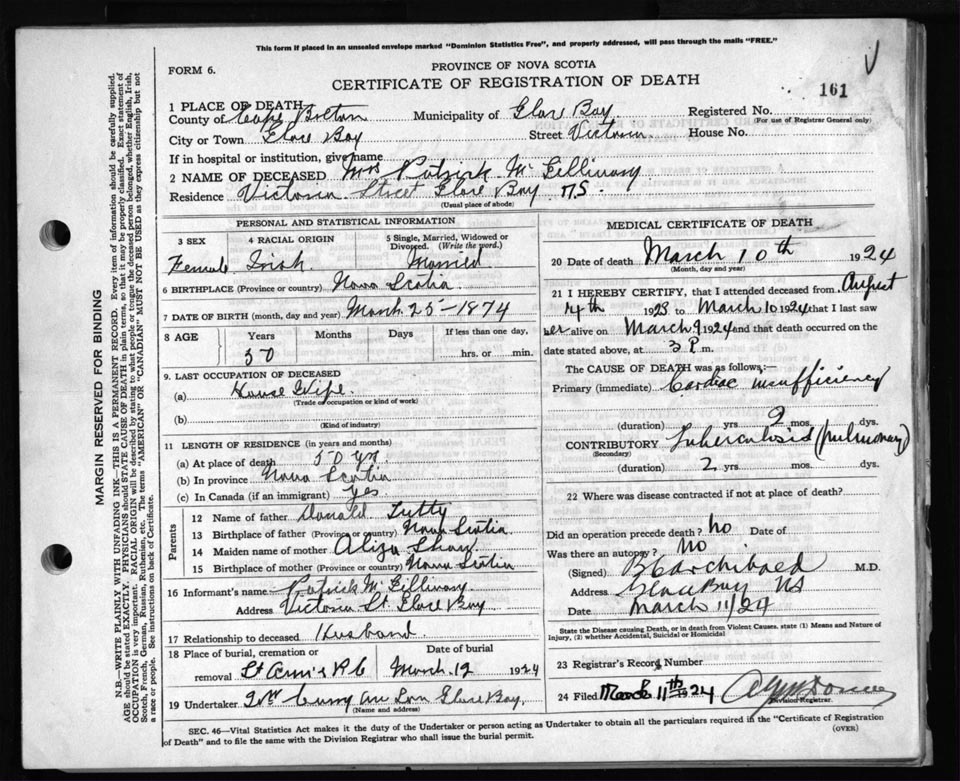 This form if placed in an unsealed envelope marked "Dominion Statistics Free", and properly addressed, will pass through the mails "FREE."
FORM 6.
PROVINCE OF NOVA SCOTIA
CERTIFICATE OF REGISTRATION OF DEATH
161
1 PLACE OF DEATH
County of Cape Breton Municipality of Glace Bay Registered No.
(For use of Registrar General only)
City or Town Glace Bay Street Victoria House No.
If in hospital or institution, give name
2 NAME OF DECEASED Mrs Patrick McGillivary
Residence Victoria Street Glace Bay N.S.
(Usual place of abode)
PERSONAL AND STATISTICAL INFORMATION
3 SEX 4 RACIAL ORIGIN 5 Single, Married, Widowed or Divorced. (Write the word.)
Female Irish Married
6 BIRTHPLACE (Province or country) Nova Scotia
7 DATE OF BIRTH (month, day and year) March 25-1874
8 AGE Years Months Days If less than one day,
50 hrs. or min.
9 LAST OCCUPATION OF DECEASED
(a) House Wife
(Trade occupation or kind of work)
(b)
(Kind of industry)
11 LENGTH OF RESIDENCE (in years and months)
(a) At place of death 50 yrs.
(b) In province Nova Scotia
(c) In Canada (if an immigrant) Yes
Parents
12 Name of father Donald Tutty
13 Birthplace of father (Province or country) Nova Scotia
14 Maiden name of mother Aliza Shaw
15 Birthplace of mother (Province or country) Nova Scotia
16 Informant's name Patrick McGillivary
Address Victoria St. Glace Bay
17 Relationship to deceased Husband
18 Place of burial, cremation or removal Date of burial
St Ann's R C March 12 1924
19 Undertaker Curry Glace Bay,
(Name and address)
MEDICAL CERTIFICATE OF DEATH
20 Date of death March 10th 1924
(Month, day and year)
21 I HEREBY CERTIFY, that I attended deceased from August
14th 1923 to March 10 1924 that I last saw
her alive on March 9 1924 and that death occurred on
date stated above, at 3 P. m.
The CAUSE OF DEATH was as follows:—
Primary (immediate) Cardiac insufficiency
(duration) yrs 2 mos. dys.
CONTRIBUTORY Tuberculosis (pulmonary)
(Secondary)
(duration) 2 yrs mos. dys.
22 Where was disease contracted if not at place of death?
Did an operation precede death? No Date of
Was there an autopsy? No
(Signed) Archibald M.D.
Address Glace Bay NS
Date March 11/24
State the Disease causing Death, or in death from Violent Causes, state (1) Means and Nature of Injury, (2) whether Accidental, Suicidal or Homicidal
23 Registrar's Record Number
24 Filed March 11th 1924
Division Registrar.
SEC. 46—Vital Statistics Act makes it the duty of the Undertaker or person acting as Undertaker to obtain all the particulars required in the "Certificate of Registration of Death" and to file the same with the Division Registrar who shall issue the burial permit.
(OVER)
MARGIN RESERVED FOR BINDING
N.B.—WRITE PLAINLY, WITH UNFADING INK—THIS IS A PERMANENT RECORD. Every item of information should be carefully supplied.
AGE should be stated EXACTLY. PHYSICIANS should STATE CAUSE OF DEATH in plain terms, so that it may be properly classified. Exact statement of
OCCUPATION is very important. RACIAL ORIGIN will be described by stating to what people or tongue the deceased person belonged, whether English, Irish,
Scotch, French, German, Russian, Ruthenian, etc. The terms "AMERICAN" or "CANADIAN" MUST NOT BE USED as they express citizenship but not
a race or people. See instructions on back of Certificate.